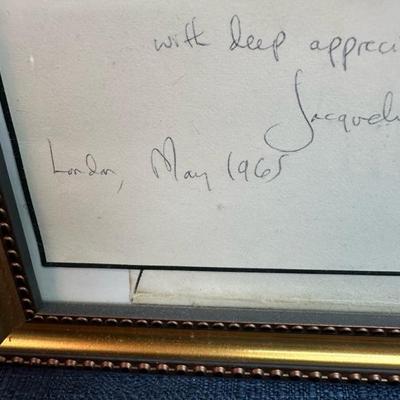 with deep appreci
Jacquel
London, May 1965